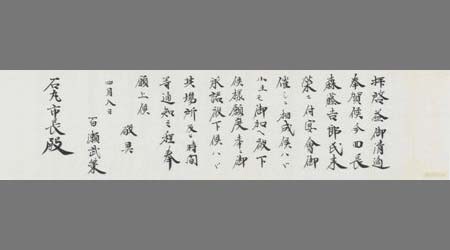 拝啓益御清適
奉賀候今回長
森藤吉郎氏来
築ニ付宴会御
催しニ相成候ハヾ
小生モ御加へ被下
候様願度幸ニ御
承諾被下候ハヾ
其場所及ヒ時間
等通知之程奉
願上候
敬具
四月八日
百瀬武策
石丸市長殿